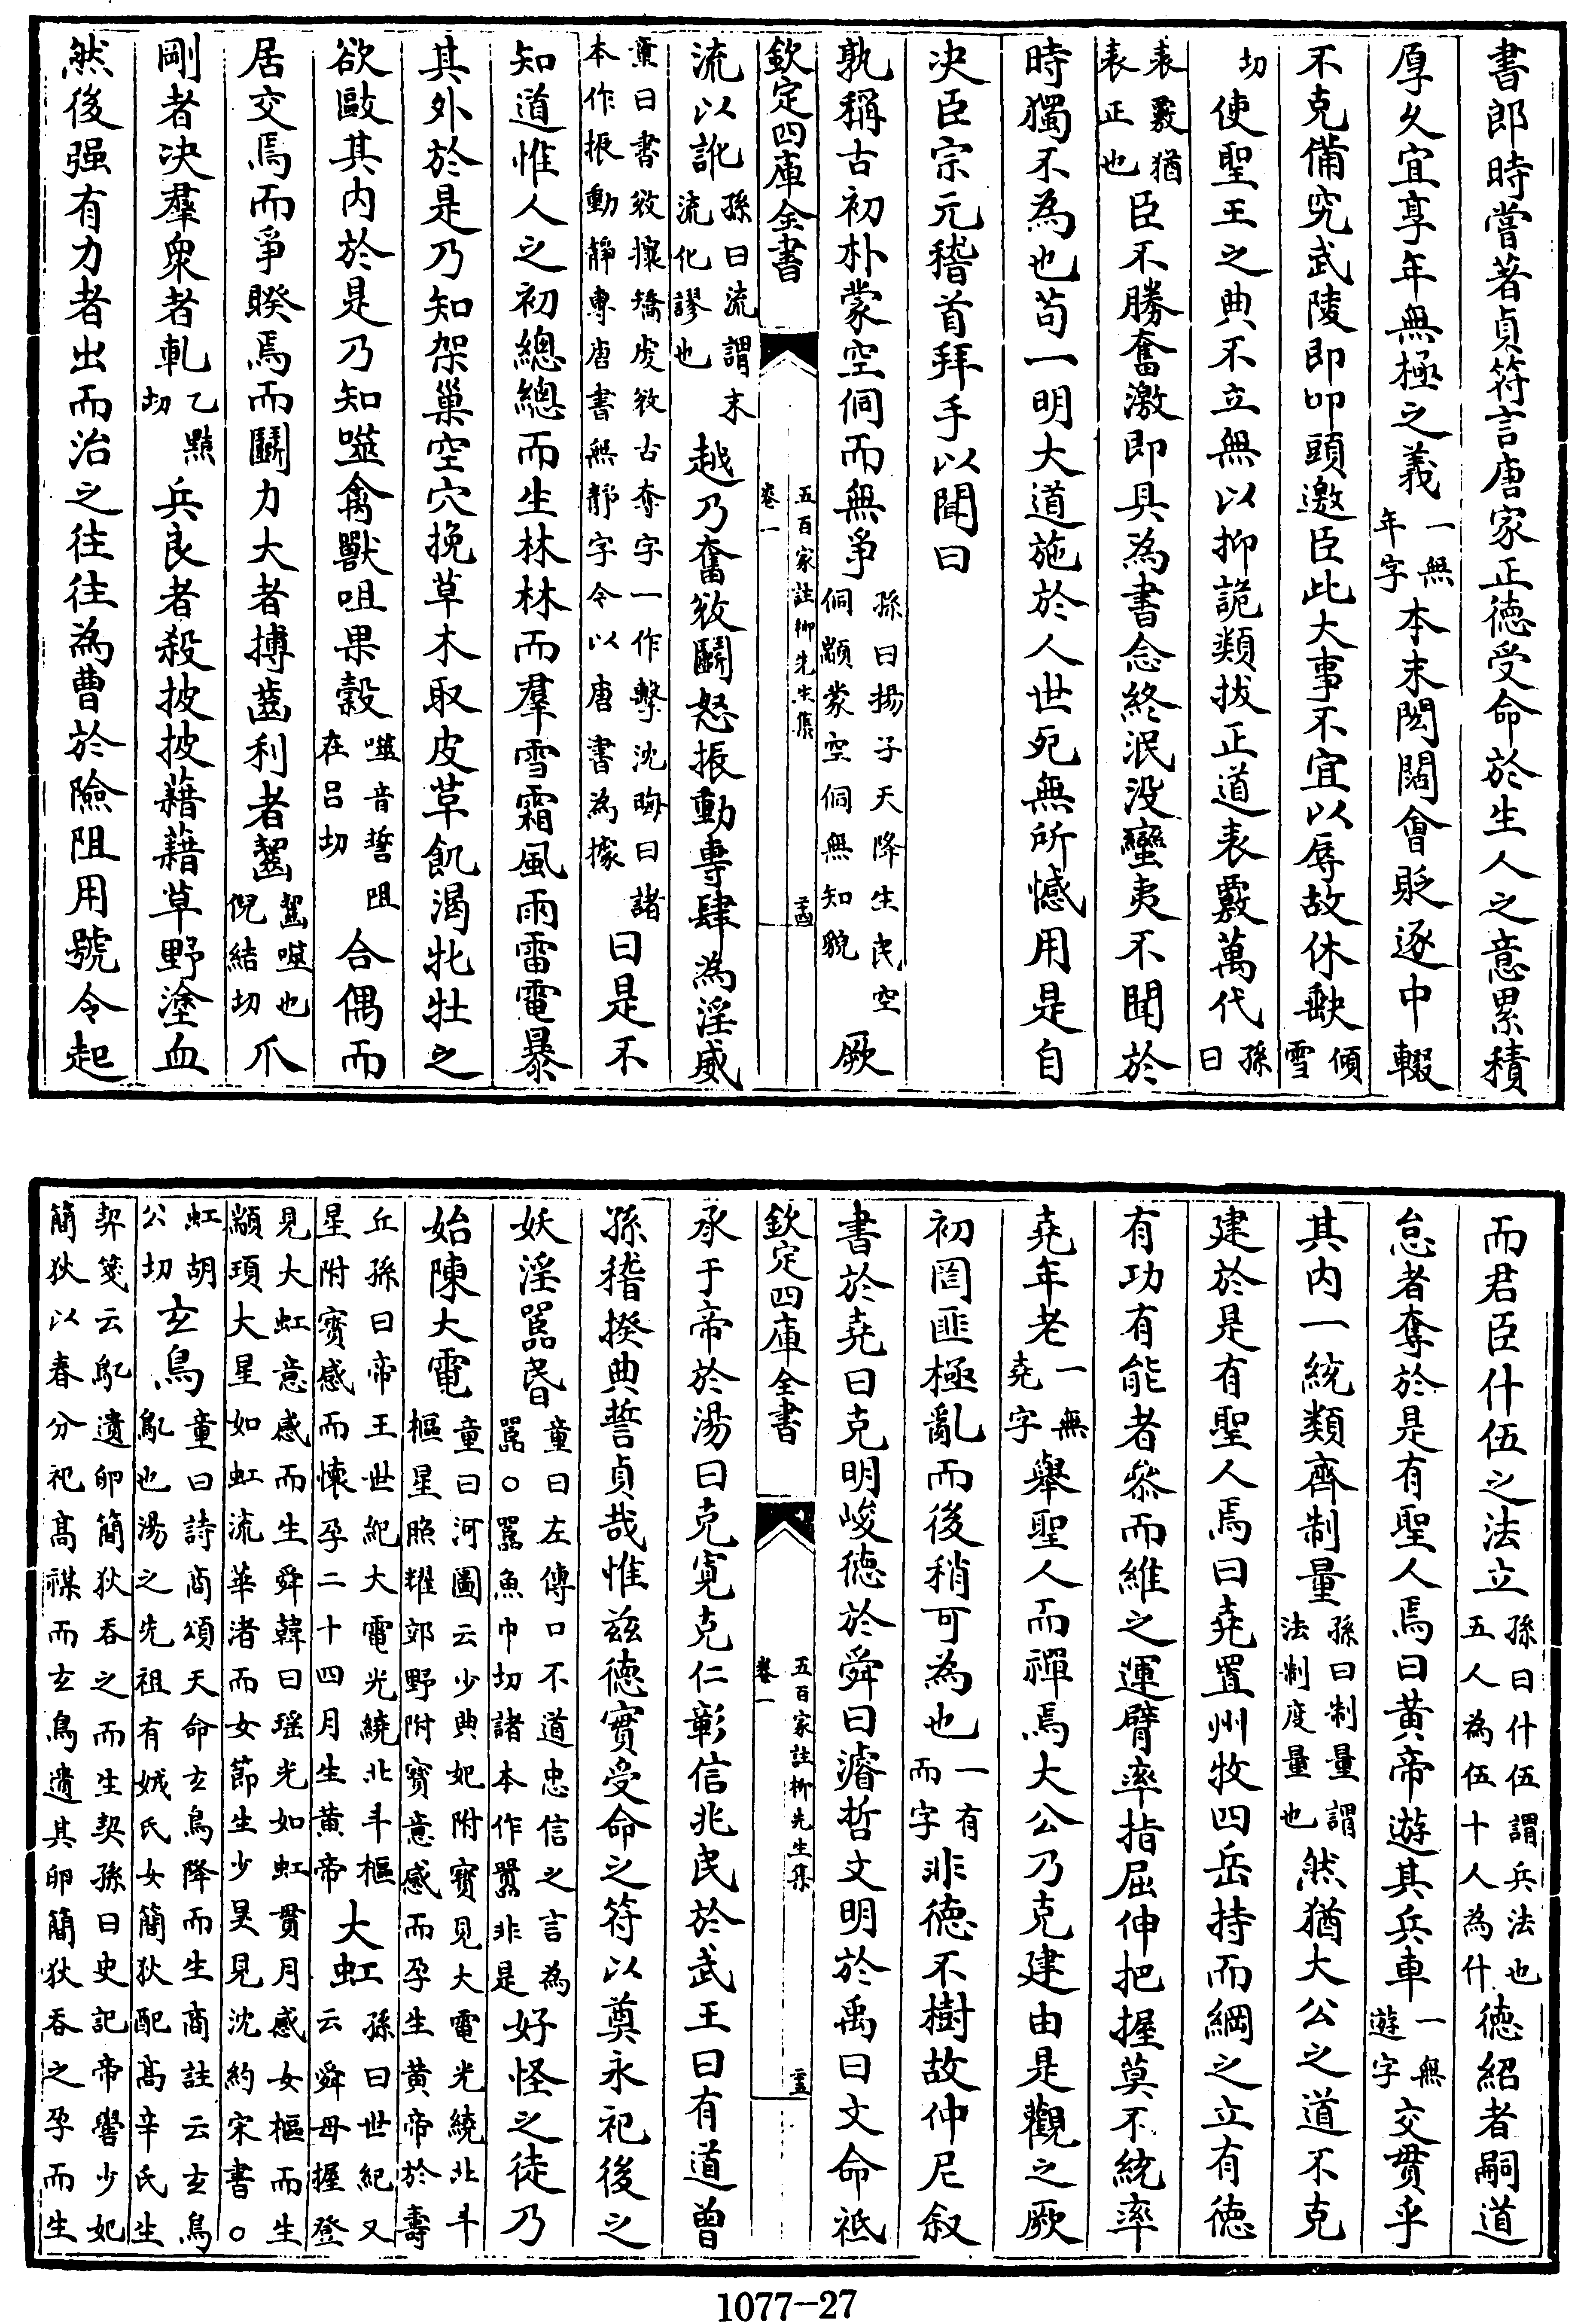 書郎時嘗著貞符言唐家正德受命於生人之意累積
厚久宜享年無極之義一無年字本末閎闊會貶逐中輟
不克備究武陵即叩頭邀臣此大事不宜以辱故休缺傾雪
切使聖王之典不立無以抑詭類拔正道表覈萬代孫曰
表覈猶表正也臣不勝奮激即具為書念終泯没蠻夷不聞於
時獨不為也苟一明大道施於人世死無所憾用是自
决臣宗元稽首拜手以聞曰
孰稱古初朴蒙空侗而無爭孫曰揚子天降生民空侗顓蒙空侗無知貌厥
欽定四庫全書
五百家註柳先生集
卷一
二十四
流以訛孫曰流謂末流化謬也越乃奮敓鬭怒振動專肆為淫威
童曰書敓攘矯虔敓古奪字一作擊沈晦曰諸本作振動靜專唐書無靜字令以唐書為據曰是不
知道惟人之初總總而生林林而羣雪霜風雨雷電暴
其外於是乃知架巢空穴挽草木取皮革飢渴牝牡之
欲歐其內於是乃知噬禽獸咀果穀噬音誓咀在吕切合偶而
居交焉而爭睽焉而鬭力大者搏齒利者齧齧噬也倪結切爪
剛者决羣衆者軋乙黠切兵良者殺披披藉藉草野塗血
然後强有力者出而治之往往為曹於險阻用號令起
而君臣什伍之法立孫曰什伍謂兵法也五人為伍十人為什德紹者嗣道
怠者奪於是有聖人焉曰黄帝遊其兵車一無遊字交貫乎
其内一統類齊制量孫曰制量謂法制度量也然猶大公之道不克
建於是有聖人焉曰堯置州牧四岳持而綱之立有德
有功有能者叅而維之運臂率指屈伸把握莫不統率
堯年老一無堯字舉聖人而禪焉大公乃克建由是觀之厥
初罔匪極亂而後稍可為也一有而字非德不樹故仲尼叙
書於堯曰克明峻德於舜曰濬哲文明於禹曰文命祗
欽定四庫全書
五百家註柳先生集
卷一
二十五
承于帝於湯曰克寬克仁彰信兆民於武王曰有道曾
孫稽揆典誓貞哉惟兹德實受命之符以奠永祀後之
妖淫嚚昬童曰左傳口不道忠信之言為嚚○嚚魚巾切諸本作嚻非是好怪之徒乃
始陳大電童曰河圖云少典妃附寶見大電光繞北斗樞星照耀郊野附寶意感而孕生黄帝於壽
丘孫曰帝王世紀大電光繞北斗樞星附寶感而懐孕二十四月生黄帝大虹孫曰世紀又云舜母握登
見大虹意感而生舜韓曰瑶光如虹貫月感女樞而生顓頊大星如虹流華渚而女節生少昊見沈約宋書○
虹胡公切玄鳥童曰詩商頌天命玄鳥降而生商註云玄鳥鳦也湯之先祖有娀氏女簡狄配高辛氏生
契箋云鳦遺卵簡狄吞之而生契孫曰史記帝嚳少妃簡狄以春分祀高禖而玄鳥遺其卵簡狄吞之孕而生
1077-27